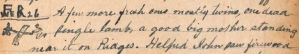 Fr 26 A few more fresh ones mostly living, one dead
single lamb, a good big mother standing
near it on Ridges. Helped John saw firewood